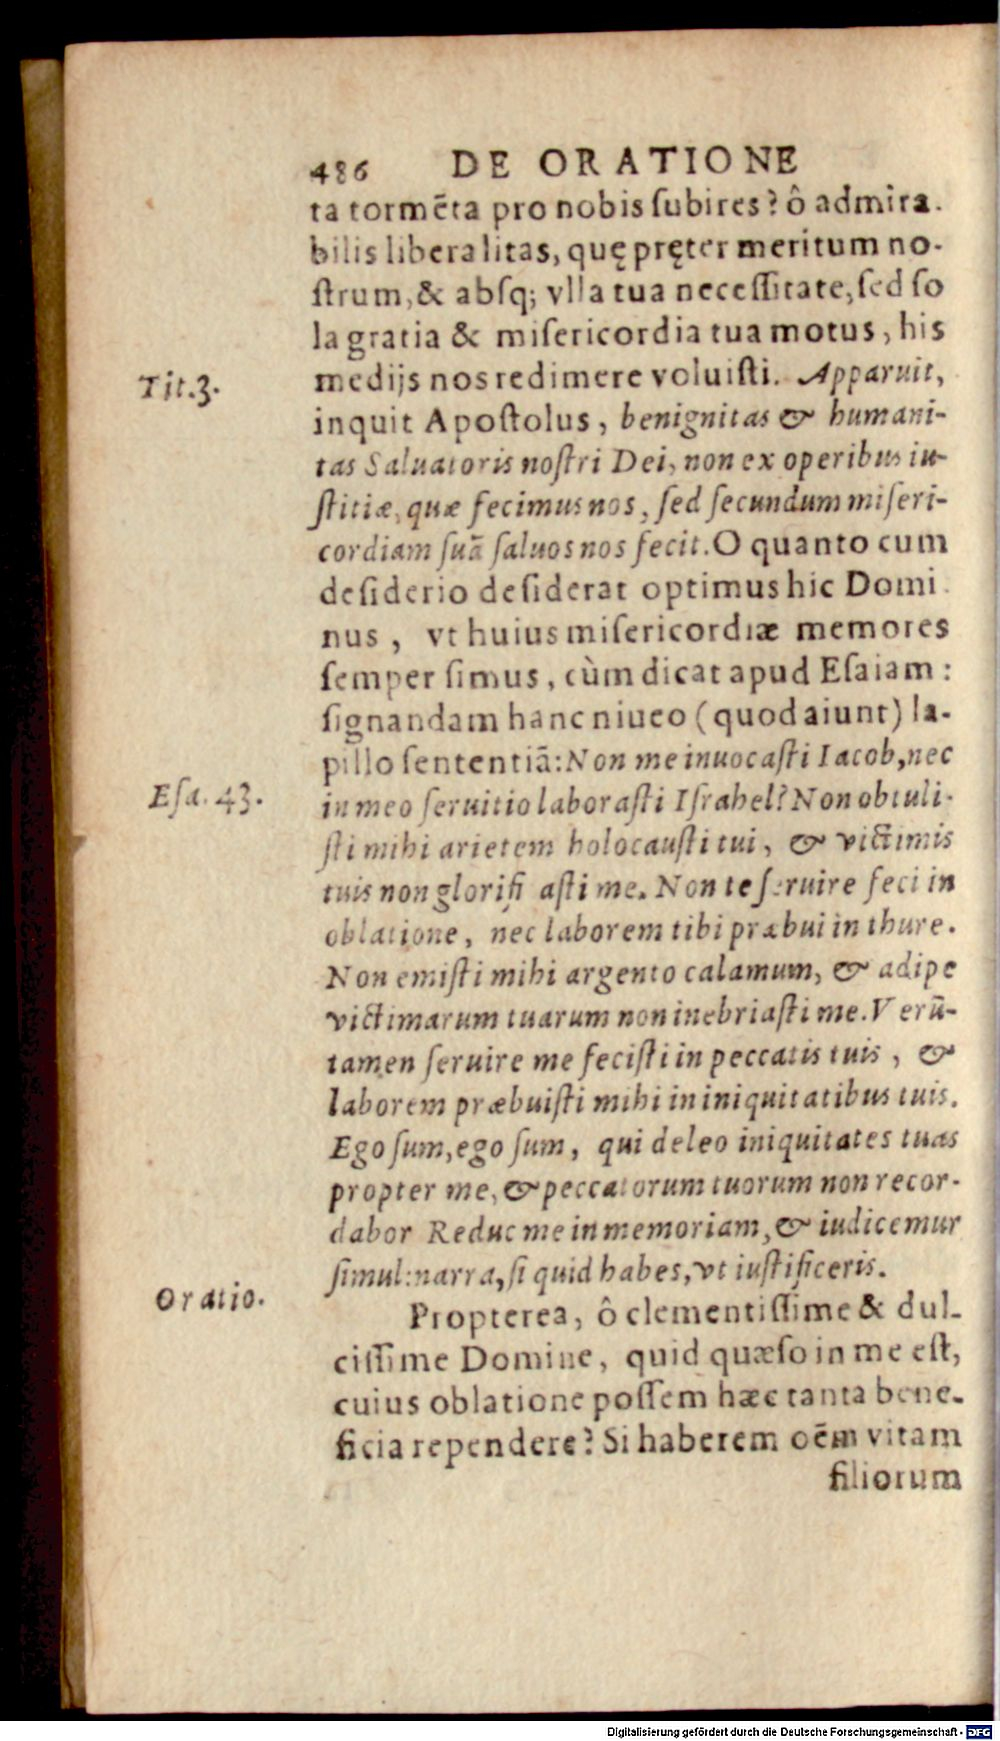 486 DE ORATIONE
ta tormẽta pro nobis ſubires? ô admira-
bilis liberalitas, quę pręter meritum no-
ſtrum, & abſq; vlla tua neceſſitate, ſed ſo
la gratia & miſericordia tua motus, his
Tit.3.
medijs nos redimere voluiſti. Apparuit,
inquit Apoſtolus, benignitas & humani-
tas Saluatoris noſtri Dei, non ex operibus iu-
ſtitiæ, quæ fecimus nos, ſed ſecundum miſeri-
cordiam ſuã ſaluos nos fecit. O quanto cum
deſiderio deſiderat optimus hic Domi
nus, vt huius miſericordiæ memores
ſemper ſimus, cùm dicat apud Eſaiam:
ſignandam hanc niueo (quod aiunt) la-
pillo ſententiã: Non me inuocaſti Iacob, nec
Eſa. 43.
in meo ſeruitio laboraſti Iſrahel? Non obtuli-
ſti mihi arietem holocauſti tui, & victimis
tuis non glorifi aſti me. Non te ſeruire feci in
oblatione, nec laborem tibi præbui in thure.
Non emiſti mihi argento calamum, & adipe
victimarum tuarum non inebriaſti me. Verũ-
tamen ſeruire me feciſti in peccatis tuis, &
laborem præbuiſti mihi in iniquitatibus tuis.
Ego ſum, ego ſum, qui deleo iniquitates tuas
propter me, & peccatorum tuorum non recor-
dabor Reduc me in memoriam, & iudicemur
ſimul: narra, ſi quid habes, vt iuſtificeris.
Oratio.
Propterea, ô clementiſſime & dul-
ciſſime Domine, quid quæſo in me eſt,
cuius oblatione poſſem hæc tanta bene-
ficia rependere? Si haberem oẽm vitam
filiorum
Digitalisierung gefördert durch die Deutsche Forschungsgemeinschaft - DFG